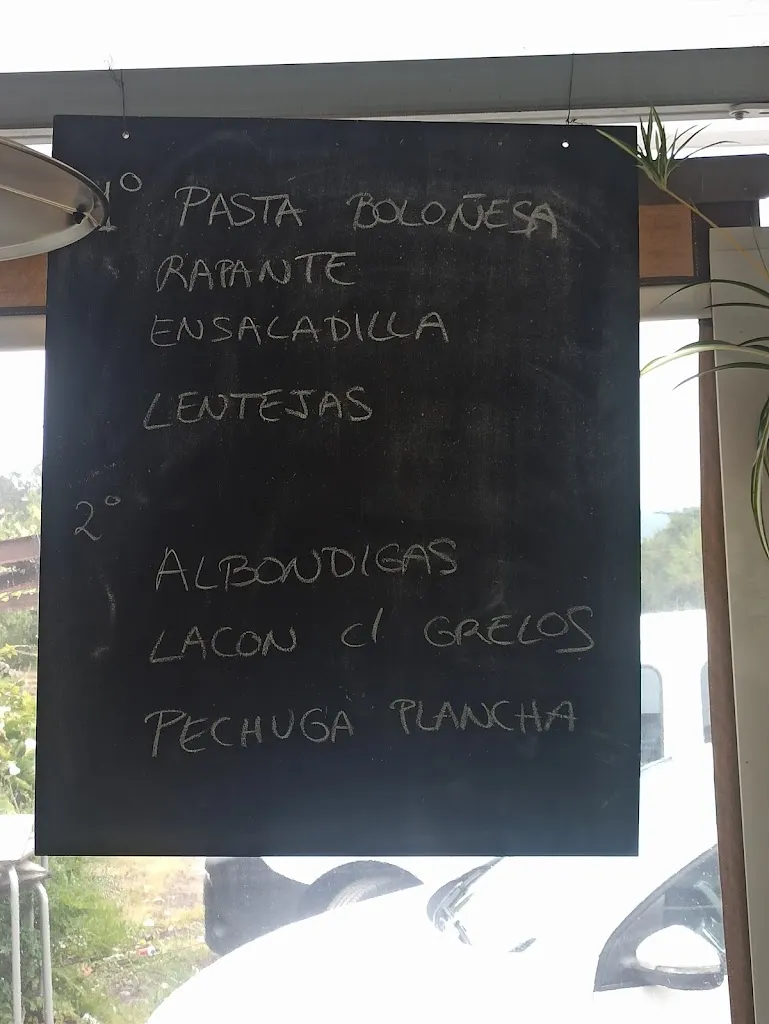 1º PASTA BOLOÑESA
RAPANTE
ENSALADILLA
LENTEJAS
2º
ALBONDIGAS
LACON c/ GRELOS
PECHUGA PLANCHA